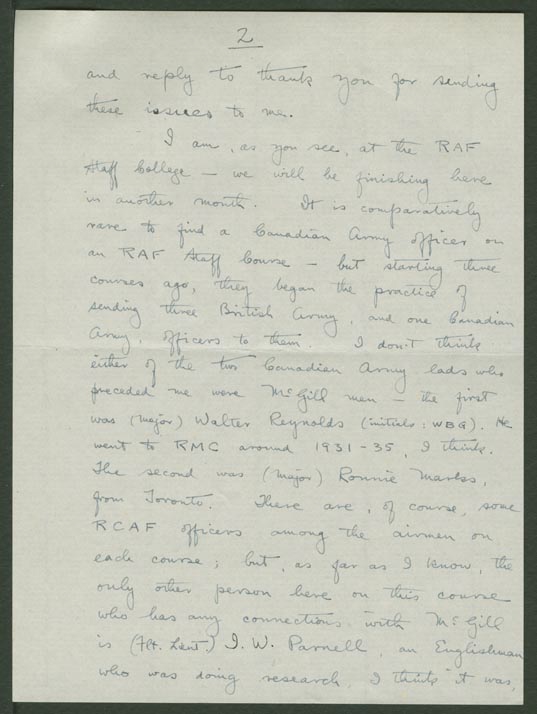 2
and reply to thank you for sending
these issues to me.
I am, as you see, at the RAF
Staff College — we will be finishing here
in another month. It is comparatively
rare to find a Canadian Army officer on
an RAF Staff Course — but starting three
courses ago, they began the practice of
sending three British Army, and one Canadian
Army, officers to them. I don't think
either of the two Canadian Army lads who
preceded me were McGill men — the first
was (Major) Walter Reynolds (initials: WBG). He
went to RMC around 1931-35, I think.
The second was (Major) Ronnie Marks,
from Toronto. There are, of course, some
RCAF officers among the airmen on
each course; but, as far as I know, the
only other person here on this course
who has any connections with McGill
is (Flt. Lieut.) I. W. Parnell, an Englishman
who was doing research, I think it was,